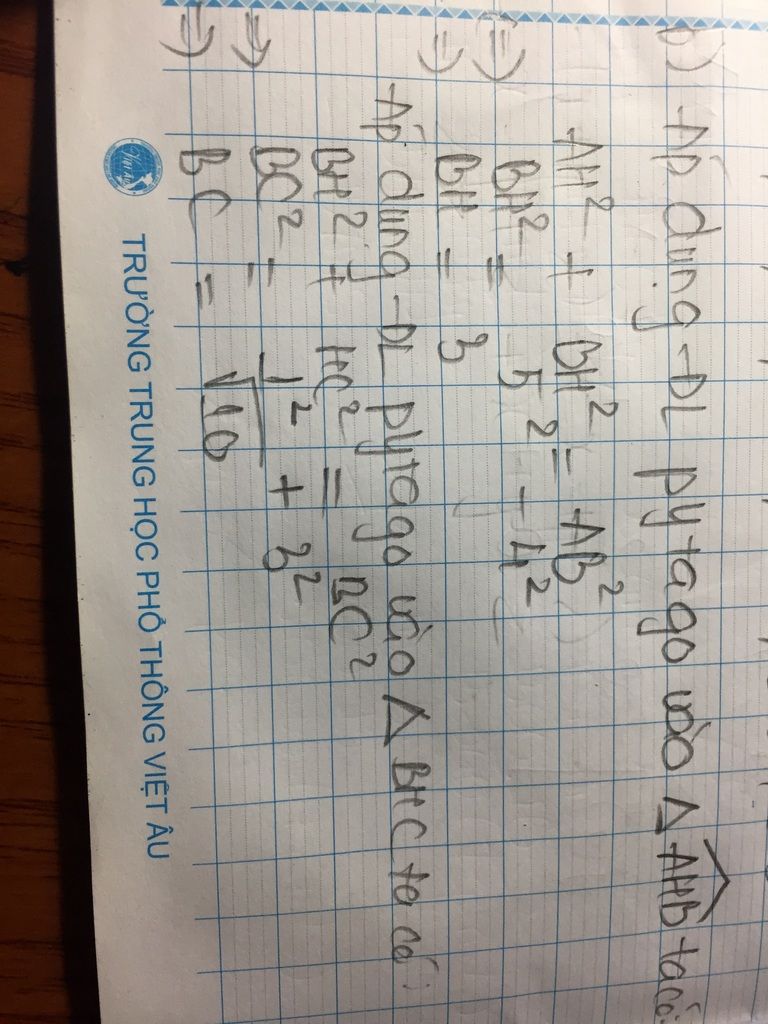 b) Áp dụng ĐL pytago vào △ AHB ta có:
AH² + BH² = AB²
(=) BH² = 5² - 4²
=) BH = 3
Áp dụng ĐL pytago vào △ BHC ta có:
BH² + HC² = BC²
=) BC² = 1² + 3²
=) BC = √10
TRƯỜNG TRUNG HỌC PHỔ THÔNG VIỆT ÂU